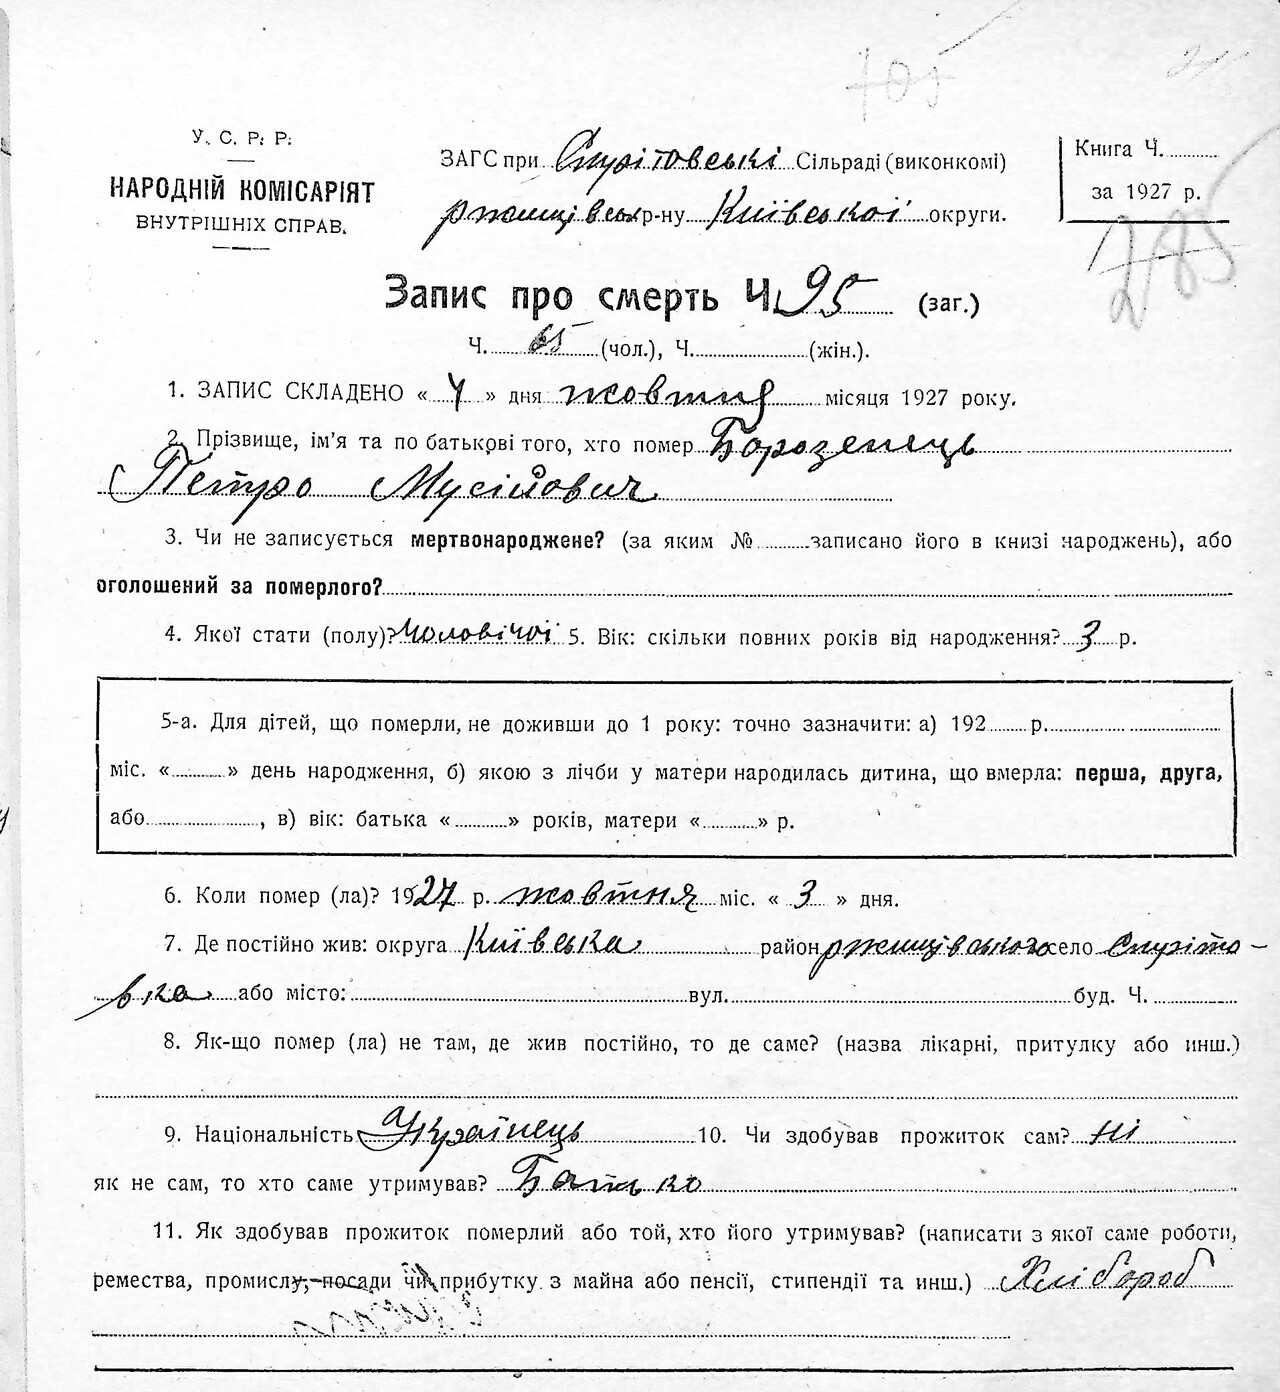 705
У. С. Р. Р.
НАРОДНІЙ КОМІСАРІЯТ
ВНУТРІШНІХ СПРАВ.
ЗАГС при Стритовські Сільраді (виконкомі)
ржищівськ р-ну Київської округи.
Книга Ч.
за 1927 р.
285
Запис про смерть Ч. 95 (заг.)
Ч. 65 (чол.), Ч. (жін.).
1. ЗАПИС СКЛАДЕНО « 4 » дня жовтня місяця 1927 року.
2. Прізвище, ім'я та по батькові того, хто помер Борозенець
Петро Мусійович
3. Чи не записується мертвонароджене? (за яким № записано його в книзі народжень), або
оголошений за померлого?
4. Якої стати (полу)? Чоловічої 5. Вік: скільки повних років від народження? 3 р.
5-а. Для дітей, що померли, не доживши до 1 року: точно зазначити: а) 192 р.
міс. « » день народження, б) якою з лічби у матери народилась дитина, що вмерла: перша, друга,
або , в) вік: батька « » років, матери « » р.
6. Коли помер (ла)? 1927 р. жовтня міс. « 3 » дня.
7. Де постійно жив: округа Київська район ржищівського село Стрито-
вка або місто: вул. буд. Ч.
8. Як-що помер (ла) не там, де жив постійно, то де саме? (назва лікарні, притулку або инш.)
9. Національність Українець 10. Чи здобував прожиток сам? ні
як не сам, то хто саме утримував? Батько
11. Як здобував прожиток померлий або той, хто його утримував? (написати з якої саме роботи,
ремества, промислу, посади чи прибутку з майна або пенсії, стипендії та инш.) Хлібороб